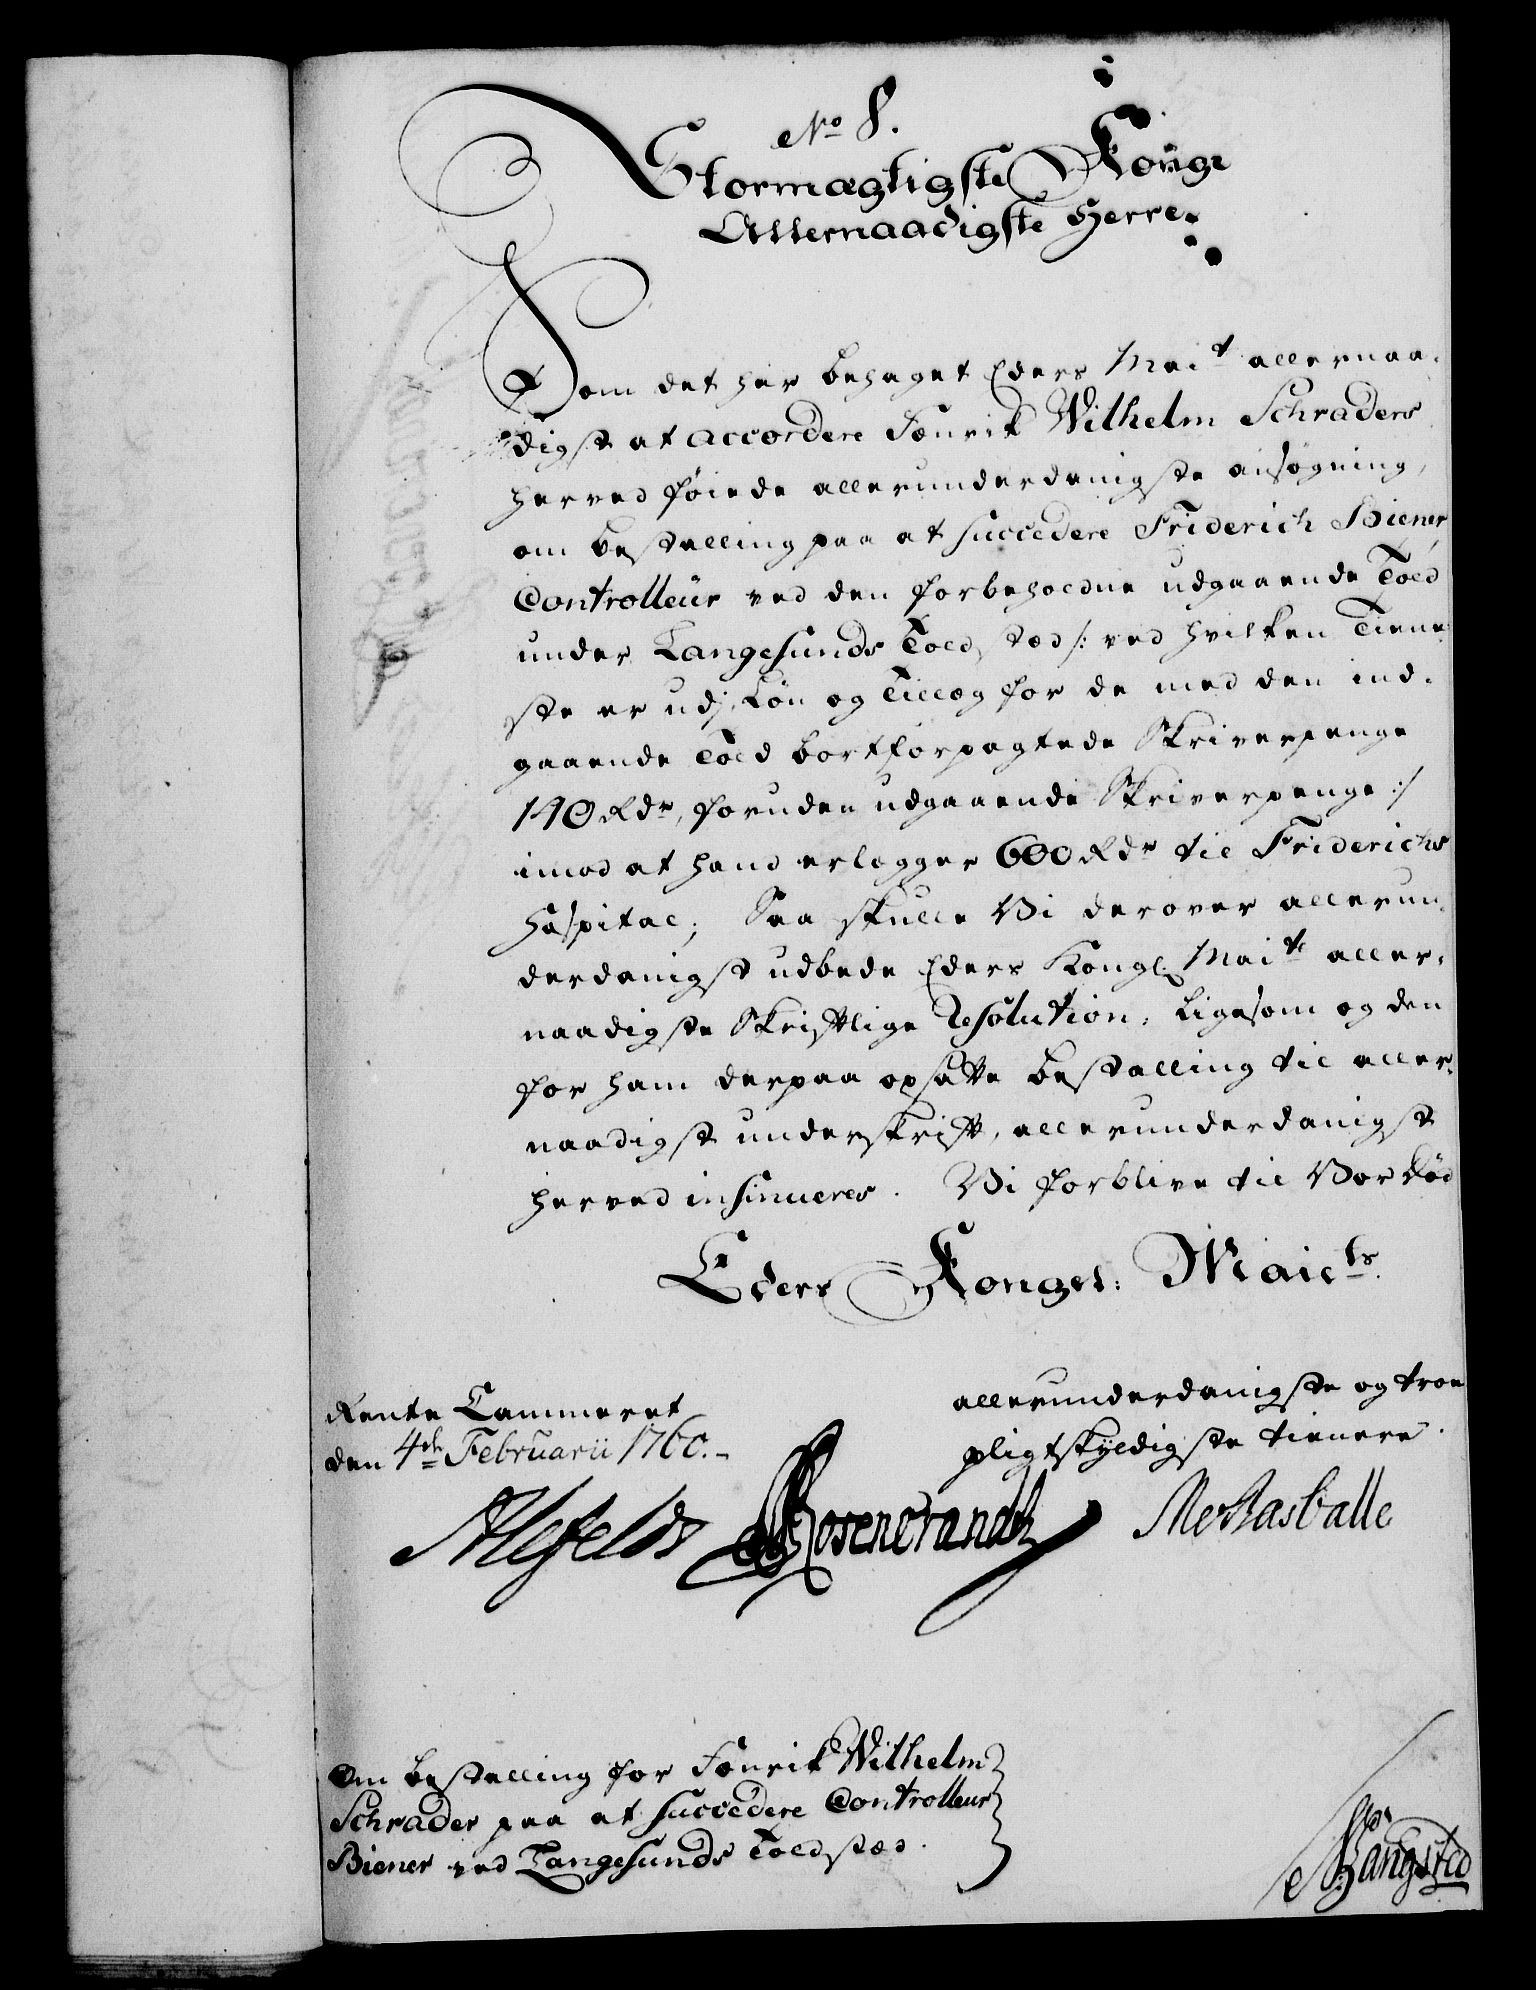 No 8.
Stormægtigste Konge
Allernaadigste Herre
Som det har behaget Eders Mait allernaa-
digst at accordere Fænrik Wilhelm Schraders
herved föiede allerunderdanigste ansøgning,
om bestalling paa at succedere Friderich Biener
Controlleur ved den forbeholdne udgaaende Told
under Langesunds Told stæd /: ved hvilken Tiene-
ste er udj Løn og Tillæg for de med den ind-
gaaende Told bortforpagtede Skriverpenge
140 Rdr, foruden udgaaende Skriverpenge :/
imod at hand erlegger 600 Rdr til Friderichs
Hospital; Saa skulle Vi derover allerun-
derdanigst udbede Eders Kongl. Maits aller-
naadigste Skriftlige Resolution, ligesom og den
for ham derpaa opsatte bestalling til aller-
naadigst underskrift, allerunderdanigst
herved insinueres. Vi forblive til Vor Död
Eders Kongel: Maits
Rente Cammeret
den 4de Februarii 1760.
allerunderdanigste og troe
pligtskyldigste tienere.
Alefeldt Rosencrandtz
Om bestalling for Fænrik Wilhelm
Schrader paa at succedere Controlleur
Biener ved Langesunds Toldstæd.
Bangsted